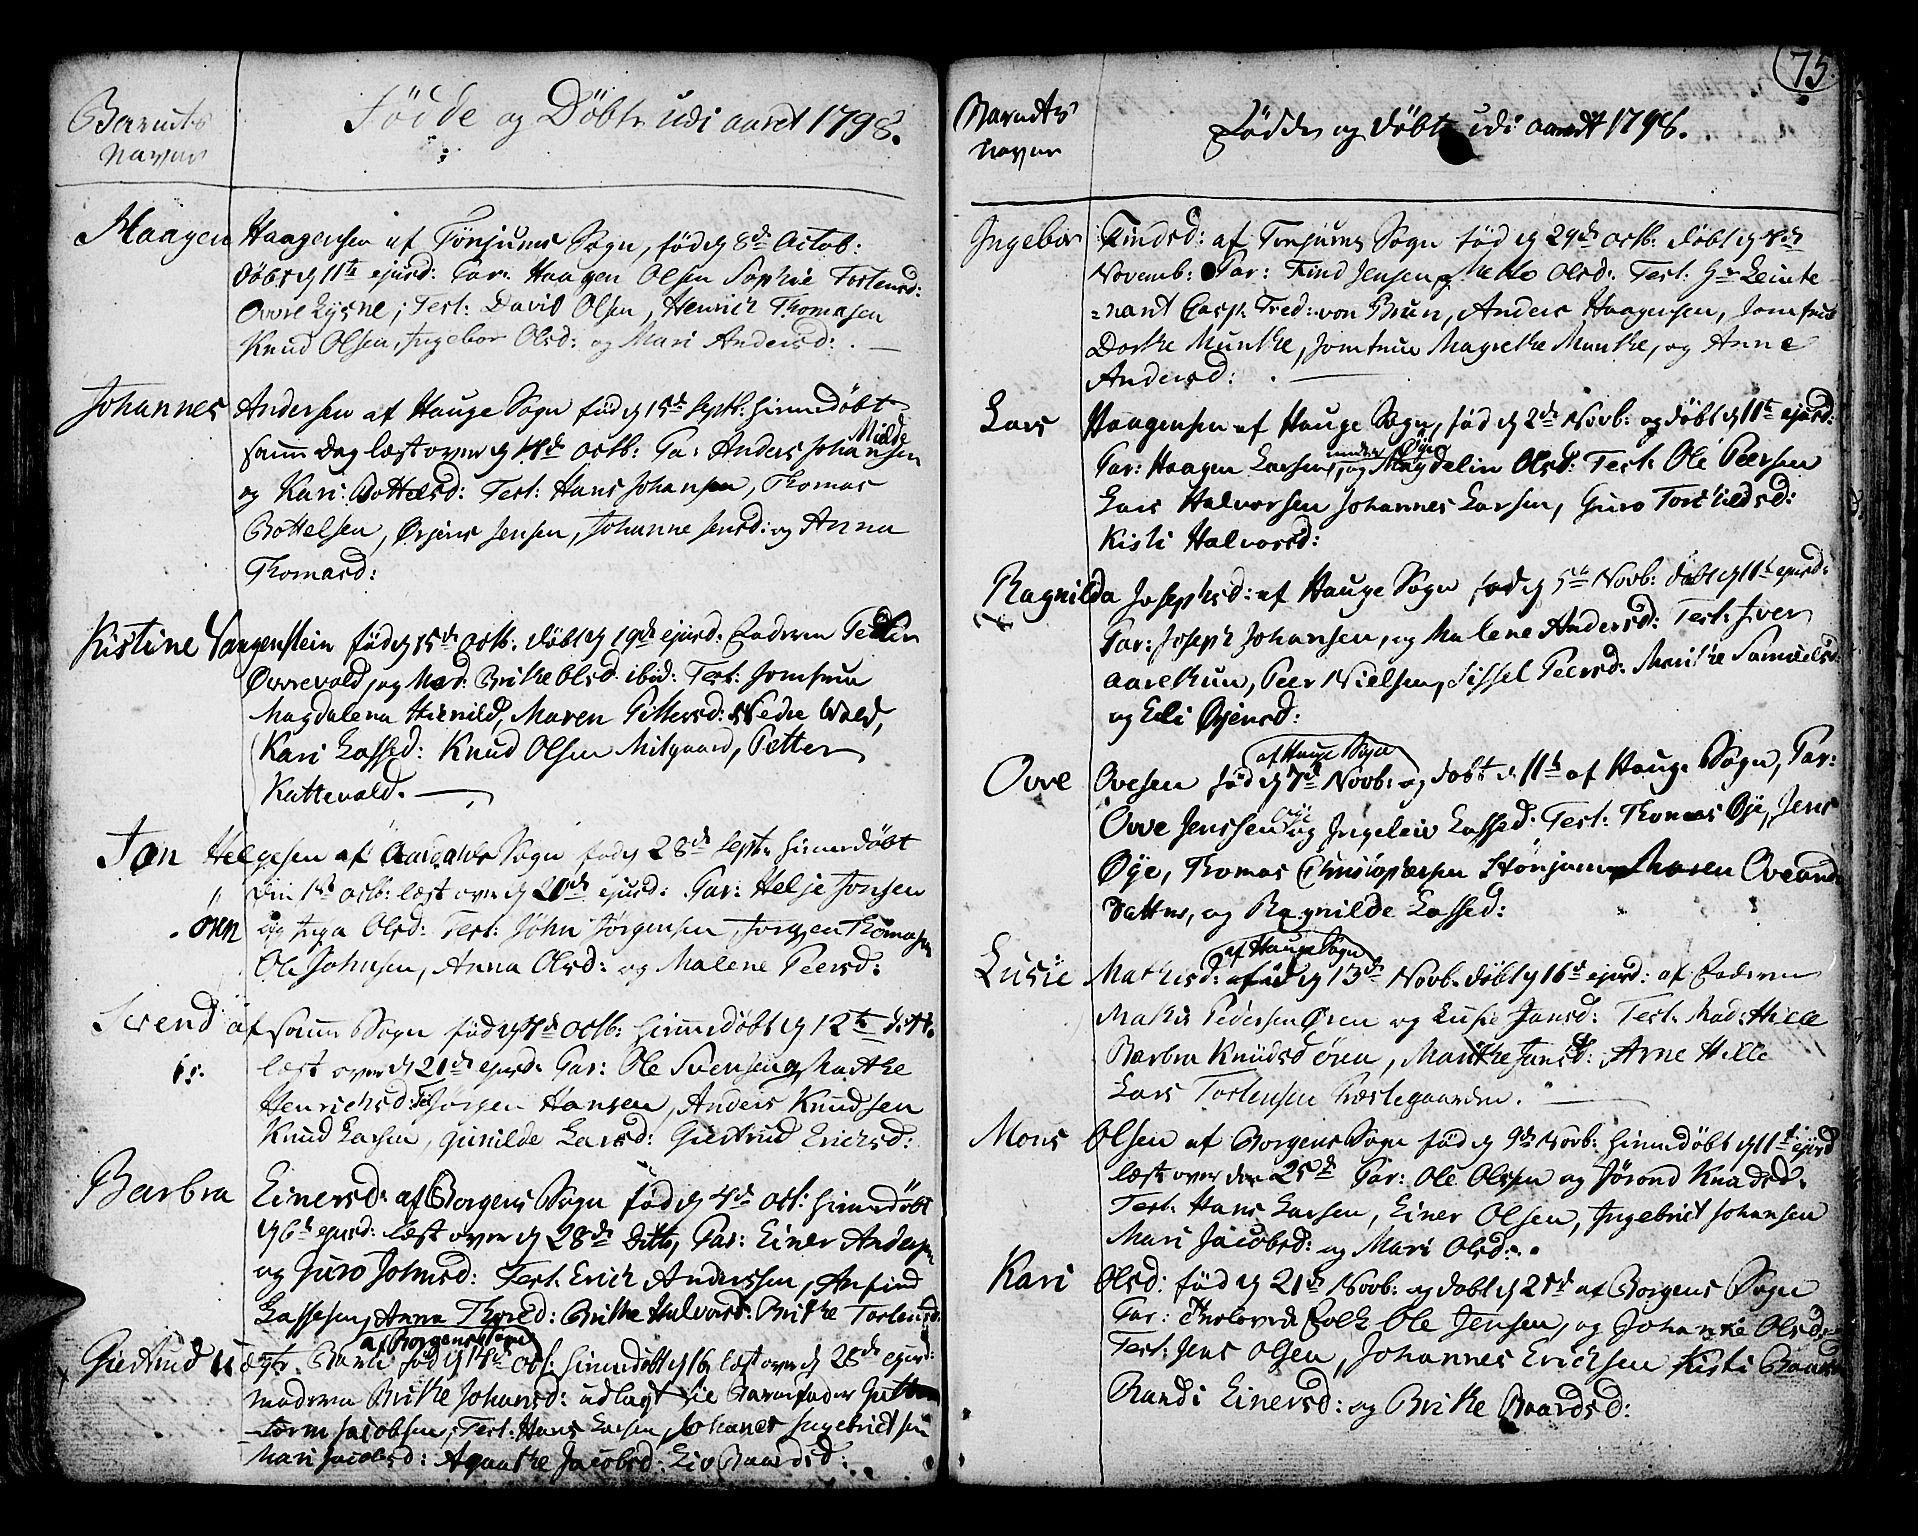 Barnets
Navne
Födde og Döbte udi aaret 1798.
Haagen Haagensen af Tönjums Sogn, föd d 8de Octob:
döbt d 11te ejusd: Par: Haagen Olsen Sophie Tostensd:
Ovre Lysne, Test: David Olsen, Henrich Thomasen
Knud Olsen, Ingebor Olsd: og Mari Andersd:
Johannes Andersen af Hauge Sogn föd d 15de Septb: hiemedöbt
samme dag læst over d 14de Octb: Pa: Anders Johansen
og Kari Bottelsd: Test: Hans Johansen, Thomas
Bottelsen, Örjens Jensen, Johanne Jensd: og Anna
Thomasd:
Kistine Vangenstein föd d 15de Octb. döbt d 19de ejusd:
Övrevold, og Mad: Brithe Olsd ibid: Test: Jomfrue
Magdalena Maren Pittersd: Nedre Vold,
Kari Lassed: Knud Olsen Petter
Kattevold.
Jon Helgesen af Aardals Sogn föd d 28de Septr hiemedöbt
den 1ste Octb: læst over d 21de ejusd: Par: Helje Jonsen
ören og Inga Olsd: Test: John Jörgensen, Jörgen Thomasen
Ole Johnsen, Anna Olsd: og Malene Peersd:
Svend af samme Sogn föd d 7de Octb: hiemedöbt d 12te ditto
læst over d 21de ejusd: Par: Ole Svensen og Marthe
Henrichsd: Test: Jörgen Hansen, Anders Knudsen
Knud Larsen, Gunilde Larsd: Giertrud Erichsd:
Barbra Einersd: af Borgens Sogn föd d 4de Oct: hiemedöbt
d 6te ejusd: læst over d 28de Ditto, Par: Einer Andersen
og Guro Johnsd: Test: Erich Anderssen, Anfind
Lassesen, Anna Thored: Brithe Halvorsd: Brithe Tostensd:
af Borgens Sogn
Giertrud uægte Barn föd d 14de Oct: hiemedöbt d 16 læst over d 28de ejusd:
moderen Brithe Johansd: udlagt til Barnefader
Jacobsen, Test: Hans Larsen, Johanes Ingebrictsen
Mari Jacobsd: Agaathe Jacobsd: Liv Baardsd:
75.
Barnets
Navne
Födde og döbte udi aaret 1798.
Ingebor Findsd: af Tönjums Sogn föd d 29de Octb: döbt d 4de
Novemb: Par: Find Jensen og Olsd: Test: Hr Leute
=nant Casp: Fred: von Brun, Anders Haagensen, Jomfrue
Dorthe Munthe, Jomfrue Magrethe Munthe, og Anne
Andersd:
Lars Haagensen af Hauge Sogn, föd d 2de Novb: og döbt d 11te ejusd:
Par: Haagen Larsen under Öye, og Magdelin Olsd: Test: Ole Peersen
Lars Halvorsen Johannes Larsen, Guro Torchildsd:
Kisti Halvorsd:
Ragnilda Josephsd: af Hauge Sogn föd d 5te Novb: döbt d 11te ejusd:
Par: Joseph Johansen, og Malene Andersd: Test: Iver
Aarethun, Peer Nielsen, Sissel Peersd: Marithe Samuelsd:
og Eli Örjensd:
af Hauge Sogn
Ovre Ovesen föd d 7de Novb: og döbt d 11te af Hauge Sogn, Par:
Ovve Jenssen Öye og Ingeleiv Lassed: Test: Thomas Öye, Jens
Öye, Thomas Christophersen Maren Oveand
datter, og Ragnilde Lassed:
af Hauge Sogn
Lusie Mathisd: föd d 13de Novb. döbt d 16de ejusd:
Mathis Pedersen Ören og Lusie Jansd: Test: Mad: Hille
Barbra Knudsd ören, Marithe Jansd: Arne Hille
Lars Tostensen Præstegaarden.
Mons Olsen af Borgens Sogn föd d 9de Novb: hiemedöbt d 11te ejusd
læst over den 25de Par: Ole Olssen og Jörond Knudsd:
Test: Hans Larsen, Einer Olsen, Ingebrict Johansen
Mari Jacobsd: og Mari Olsd:
Kari Olsd: föd d 21de Novb: og döbt d 25de af Borgens Sogn
Par: Folk Ole Jensen, og Johanne Olsd:
Test: Jens Olsen, Johannes Ericksen Kisti
Randi Einersd: og Brithe Baardsd: